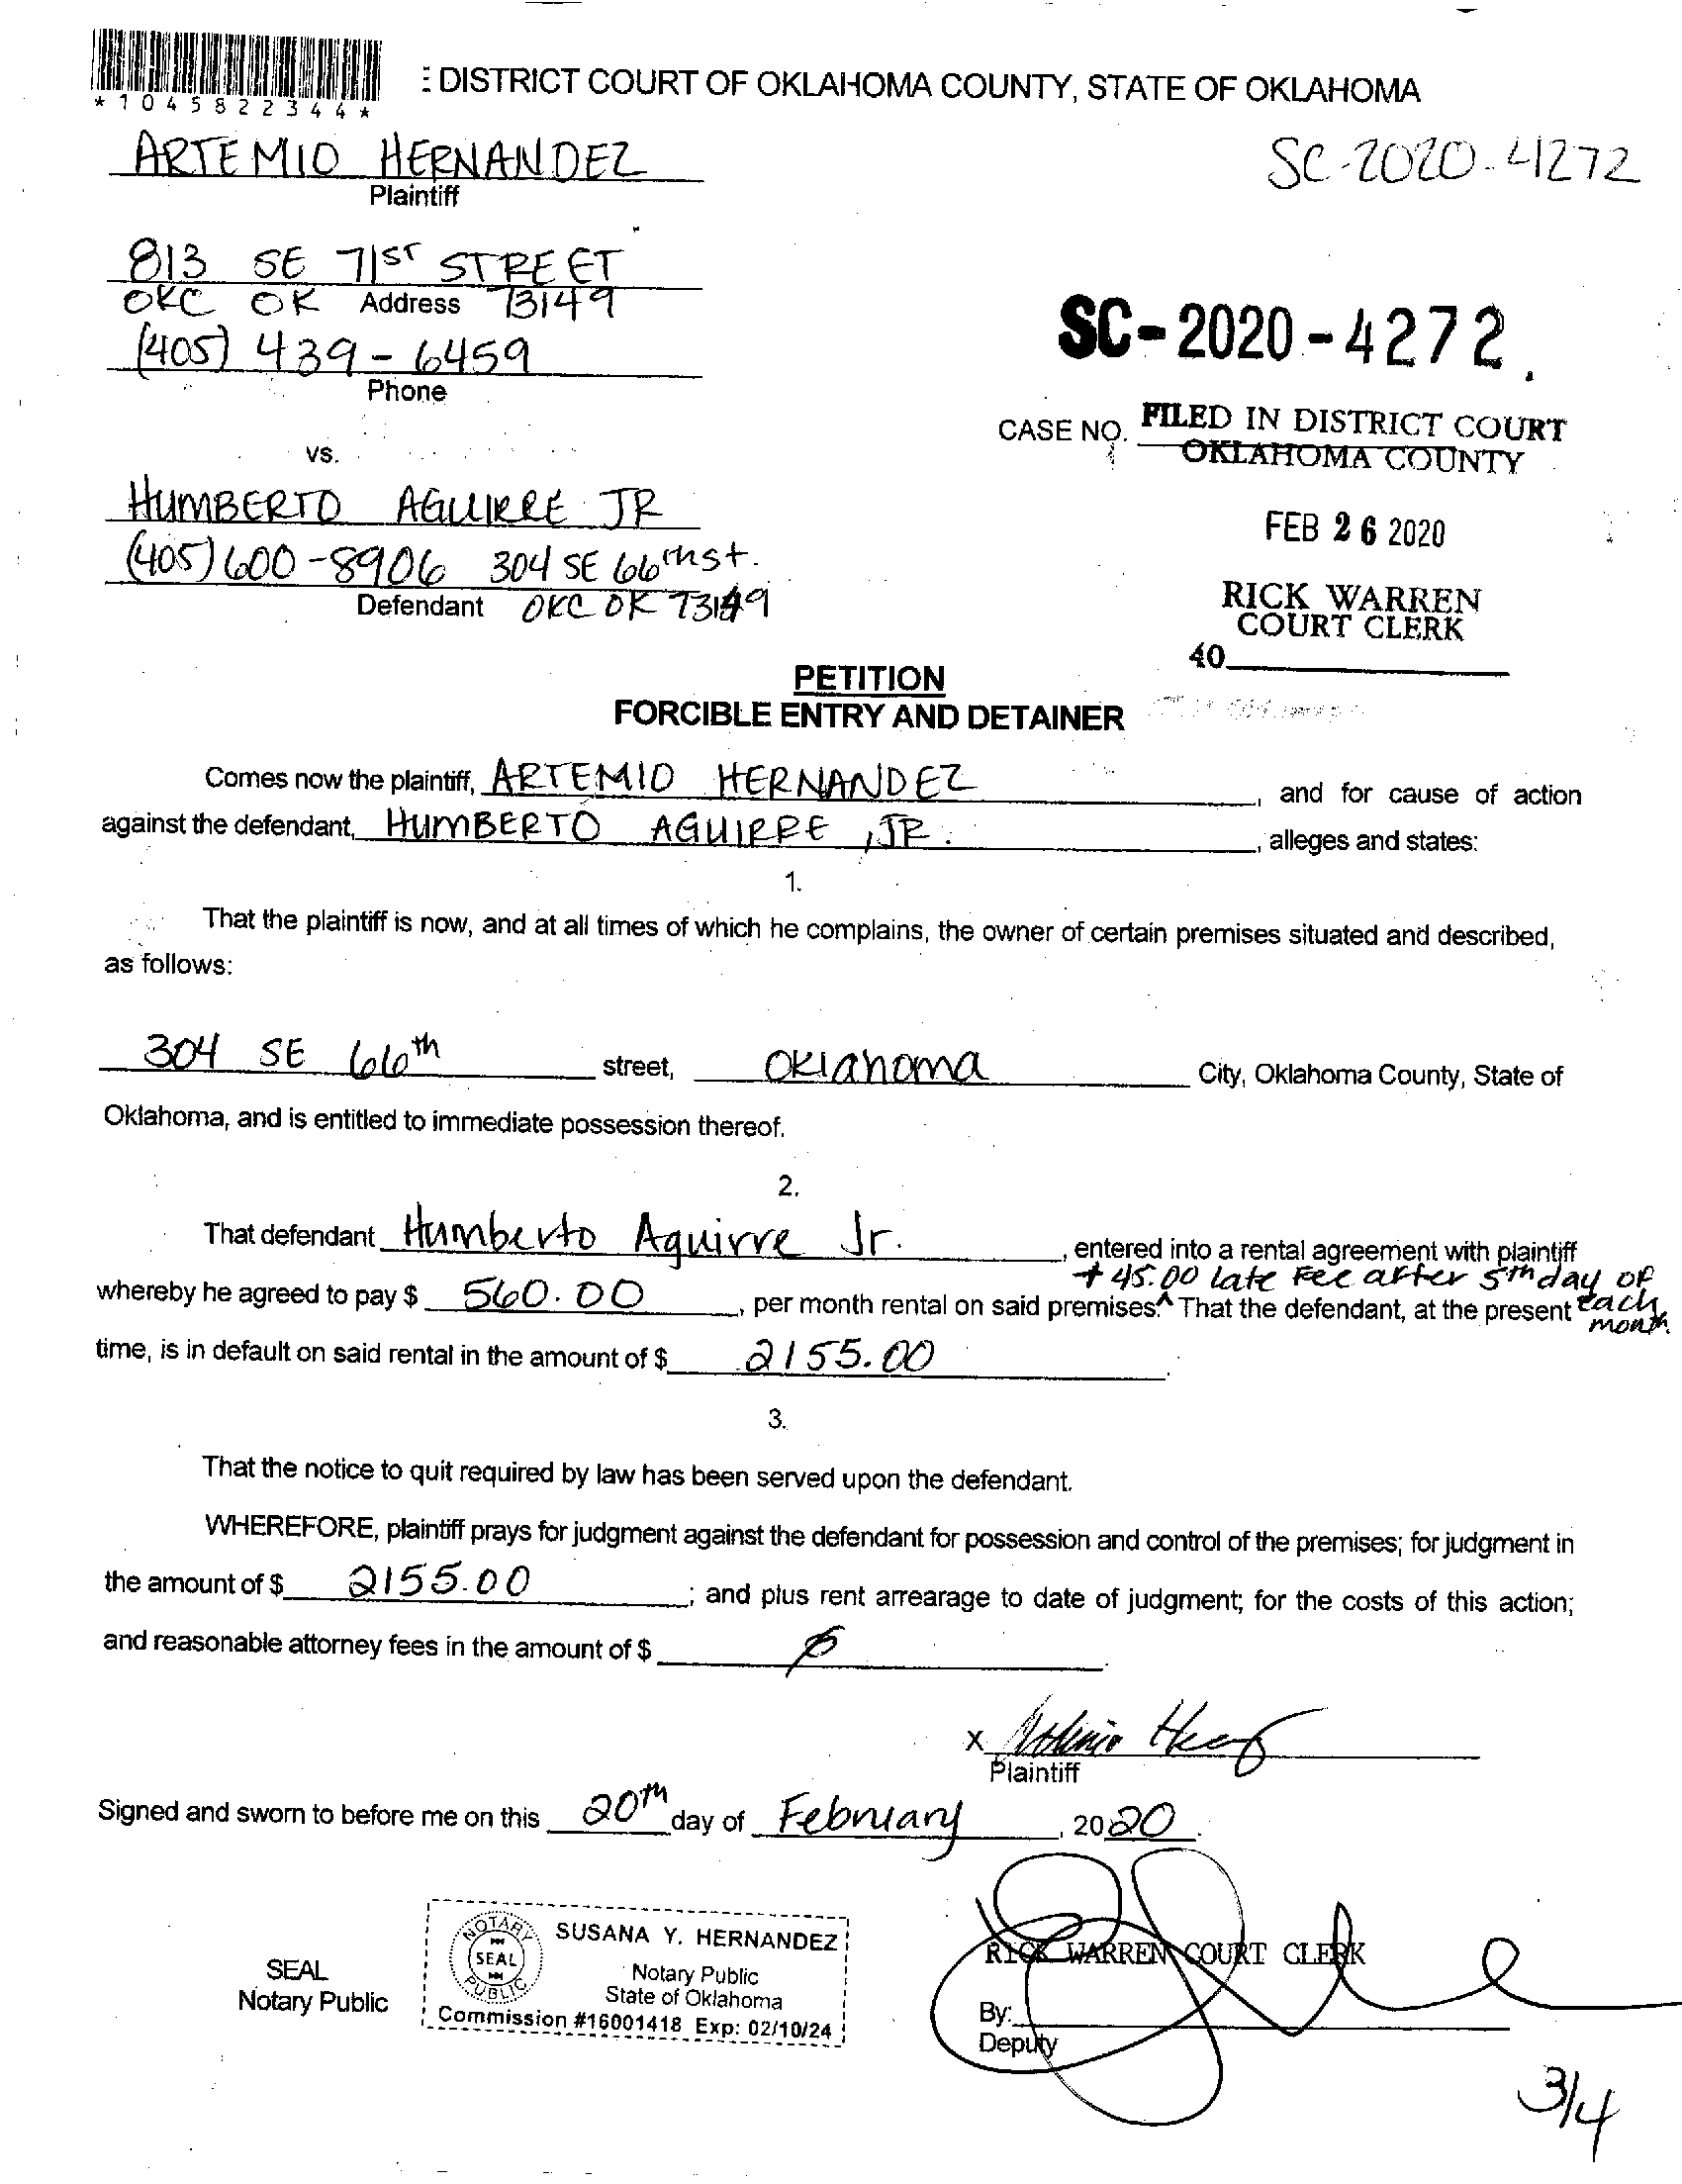 *1045822344*
: DISTRICT COURT OF OKLAHOMA COUNTY, STATE OF OKLAHOMA
ARTEMIO HERNANDEZ
Plaintiff
SC-2020-4272
813 SE 71ST STREET
OKC OK Address 73149
(405) 439-6459
Phone
SC-2020-4272
CASE NO. FILED IN DISTRICT COURT
OKLAHOMA COUNTY
vs.
HUMBERTO AGUIRRE JR
FEB 26 2020
(405) 600-8906 304 SE 66th st.
Defendant OKC OK 73149
RICK WARREN
COURT CLERK
40
PETITION
FORCIBLE ENTRY AND DETAINER
Comes now the plaintiff, ARTEMIO HERNANDEZ, and for cause of action
against the defendant, HUMBERTO AGUIRRE, JR., alleges and states:
1.
That the plaintiff is now, and at all times of which he complains, the owner of certain premises situated and described,
as follows:
304 SE 66th street, Oklahoma City, Oklahoma County, State of
Oklahoma, and is entitled to immediate possession thereof.
2.
That defendant Humberto Aguirre Jr., entered into a rental agreement with plaintiff
+ 45.00 late Fee after 5th day of each month.
whereby he agreed to pay $ 560.00, per month rental on said premises.^ That the defendant, at the present
time, is in default on said rental in the amount of $ 2155.00.
3.
That the notice to quit required by law has been served upon the defendant.
WHEREFORE, plaintiff prays for judgment against the defendant for possession and control of the premises; for judgment in
the amount of $ 2155.00; and plus rent arrearage to date of judgment; for the costs of this action;
and reasonable attorney fees in the amount of $ Ø.
X
Plaintiff
Signed and sworn to before me on this 20th day of February, 2020.
NOTARY PUBLIC SEAL
SUSANA Y. HERNANDEZ
Notary Public
State of Oklahoma
Commission #16001418 Exp: 02/10/24
SEAL
Notary Public
RICK WARREN COURT CLERK
By:
Deputy
3/4